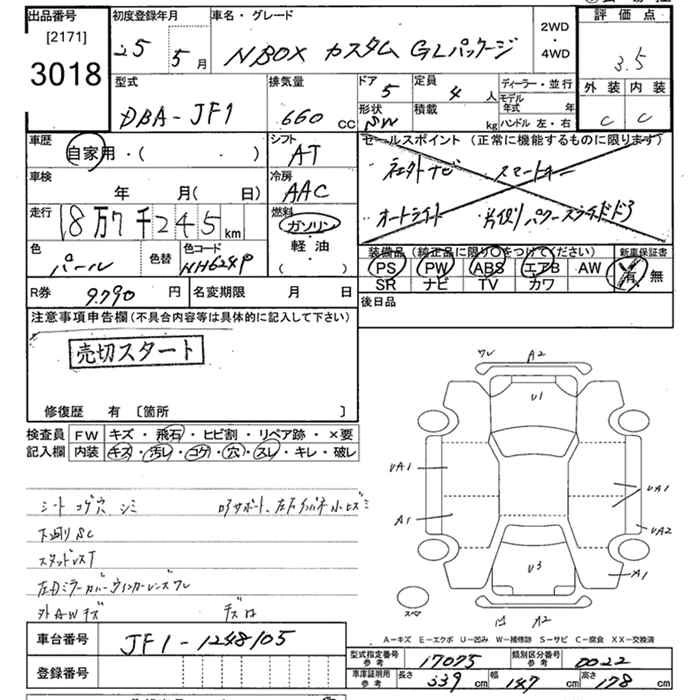 出品番号 初度登録年月 車名・グレード 2WD 評価点
[2171]
3018
25年 5月 NBOX カスタム GLパッケージ ・4WD 3.5
型式 排気量 ドア 定員 ディーラー・並行 外装 内装
DBA-JF1 660 CC 5 4人 モデル年式 年
形状 積載 ハンドル 左・右 C C
SW kg
車歴 シフト セールスポイント (正常に機能するものに限ります)
自家用・( ) AT
車検 冷房 スマートキー
年 月(日) AAC
走行 燃料 オートライト 片側パワースライドドア
18万7千245km ガソリン
色 色替 色コード ・軽油・ 装備品(純正品に限り○をつけてください) 新車保証書
パール NH624P ( ) PS PW ABS エアB AW 有・無
SR ナビ TV カワ
R券 9,790円 名変期限 月 日 後日品
注意事項申告欄(不具合内容等は具体的に記入して下さい)
売切スタート
修復歴 有 〔箇所 〕
検査員 FW キズ・飛石・ヒビ割・リペア跡・×要
記入欄 内装 キズ・汚レ・コゲ・穴・スレ・キレ・破レ
ワレ A2
U1
UA1 UA1
A1 UA2
U3 A1
スペア A2
シート コゲ穴 シミ
下廻りSC
スタッドレスT
左Dミラーカバーウィンカーレンズワレ
外AWキズ
A-キズ E-エクボ U-凹み W-補修跡 S-サビ C-腐食 XX-交換済
車台番号 JF1-1248105
登録番号
型式指定番号 参考 17075 類別区分番号 参考 0022
車庫証明用 参考 長さ 339cm 幅 147cm 高さ 178cm